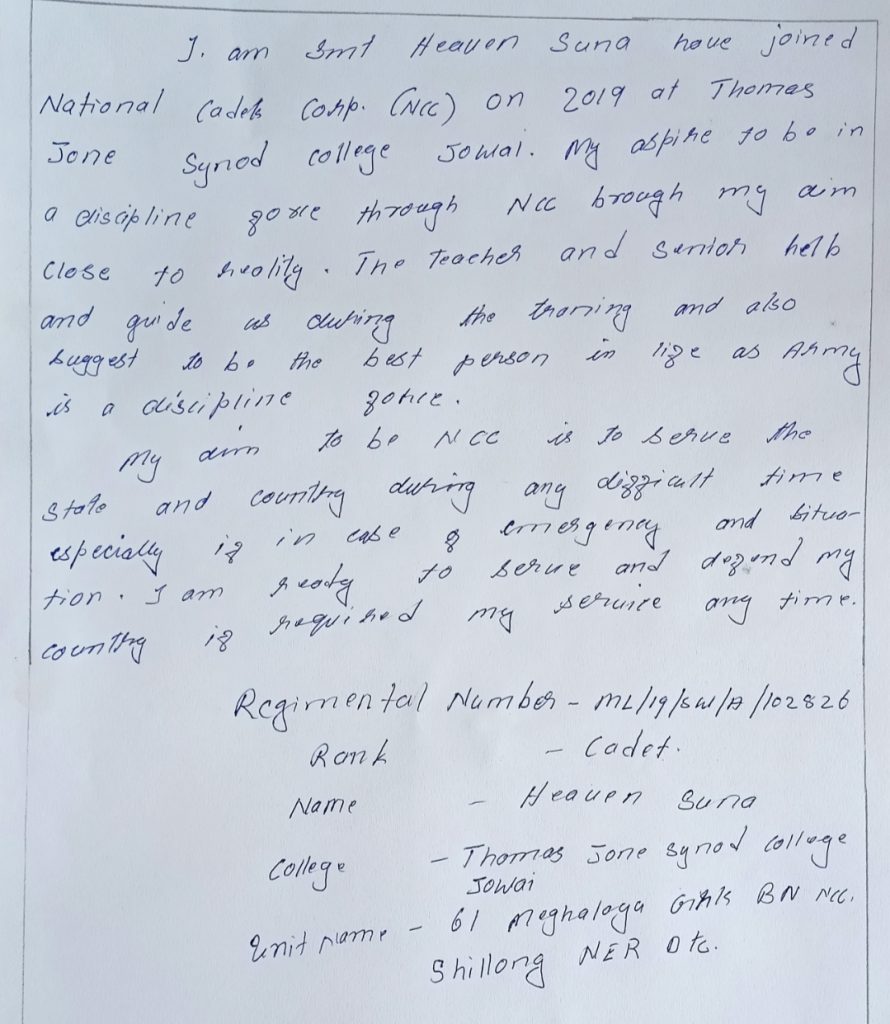 I. am Smt Heaven Suna have joined
National Cadets Corp. (NCC) on 2019 at Thomas
Jone Synod college Jowai. My aspire to be in
a discipline force through NCC brough my aim
close to reality. The Teacher and Senior helb
and guide us during the traning and also
suggest to be the best person in life as Army
is a discipline force.
My aim to be NCC is to serve the
State and country during any difficult time
especially if in case of emergency and situa-
tion. I am ready to serve and defend my
country if required my service any time.
Regimental Number - ML/19/SW/A/102826
Rank - Cadet.
Name - Heaven Suna
College - Thomas Jone Synod College
Jowai
Unit Name - 61 Meghalaya Girls BN NCC.
Shillong NER Dte.